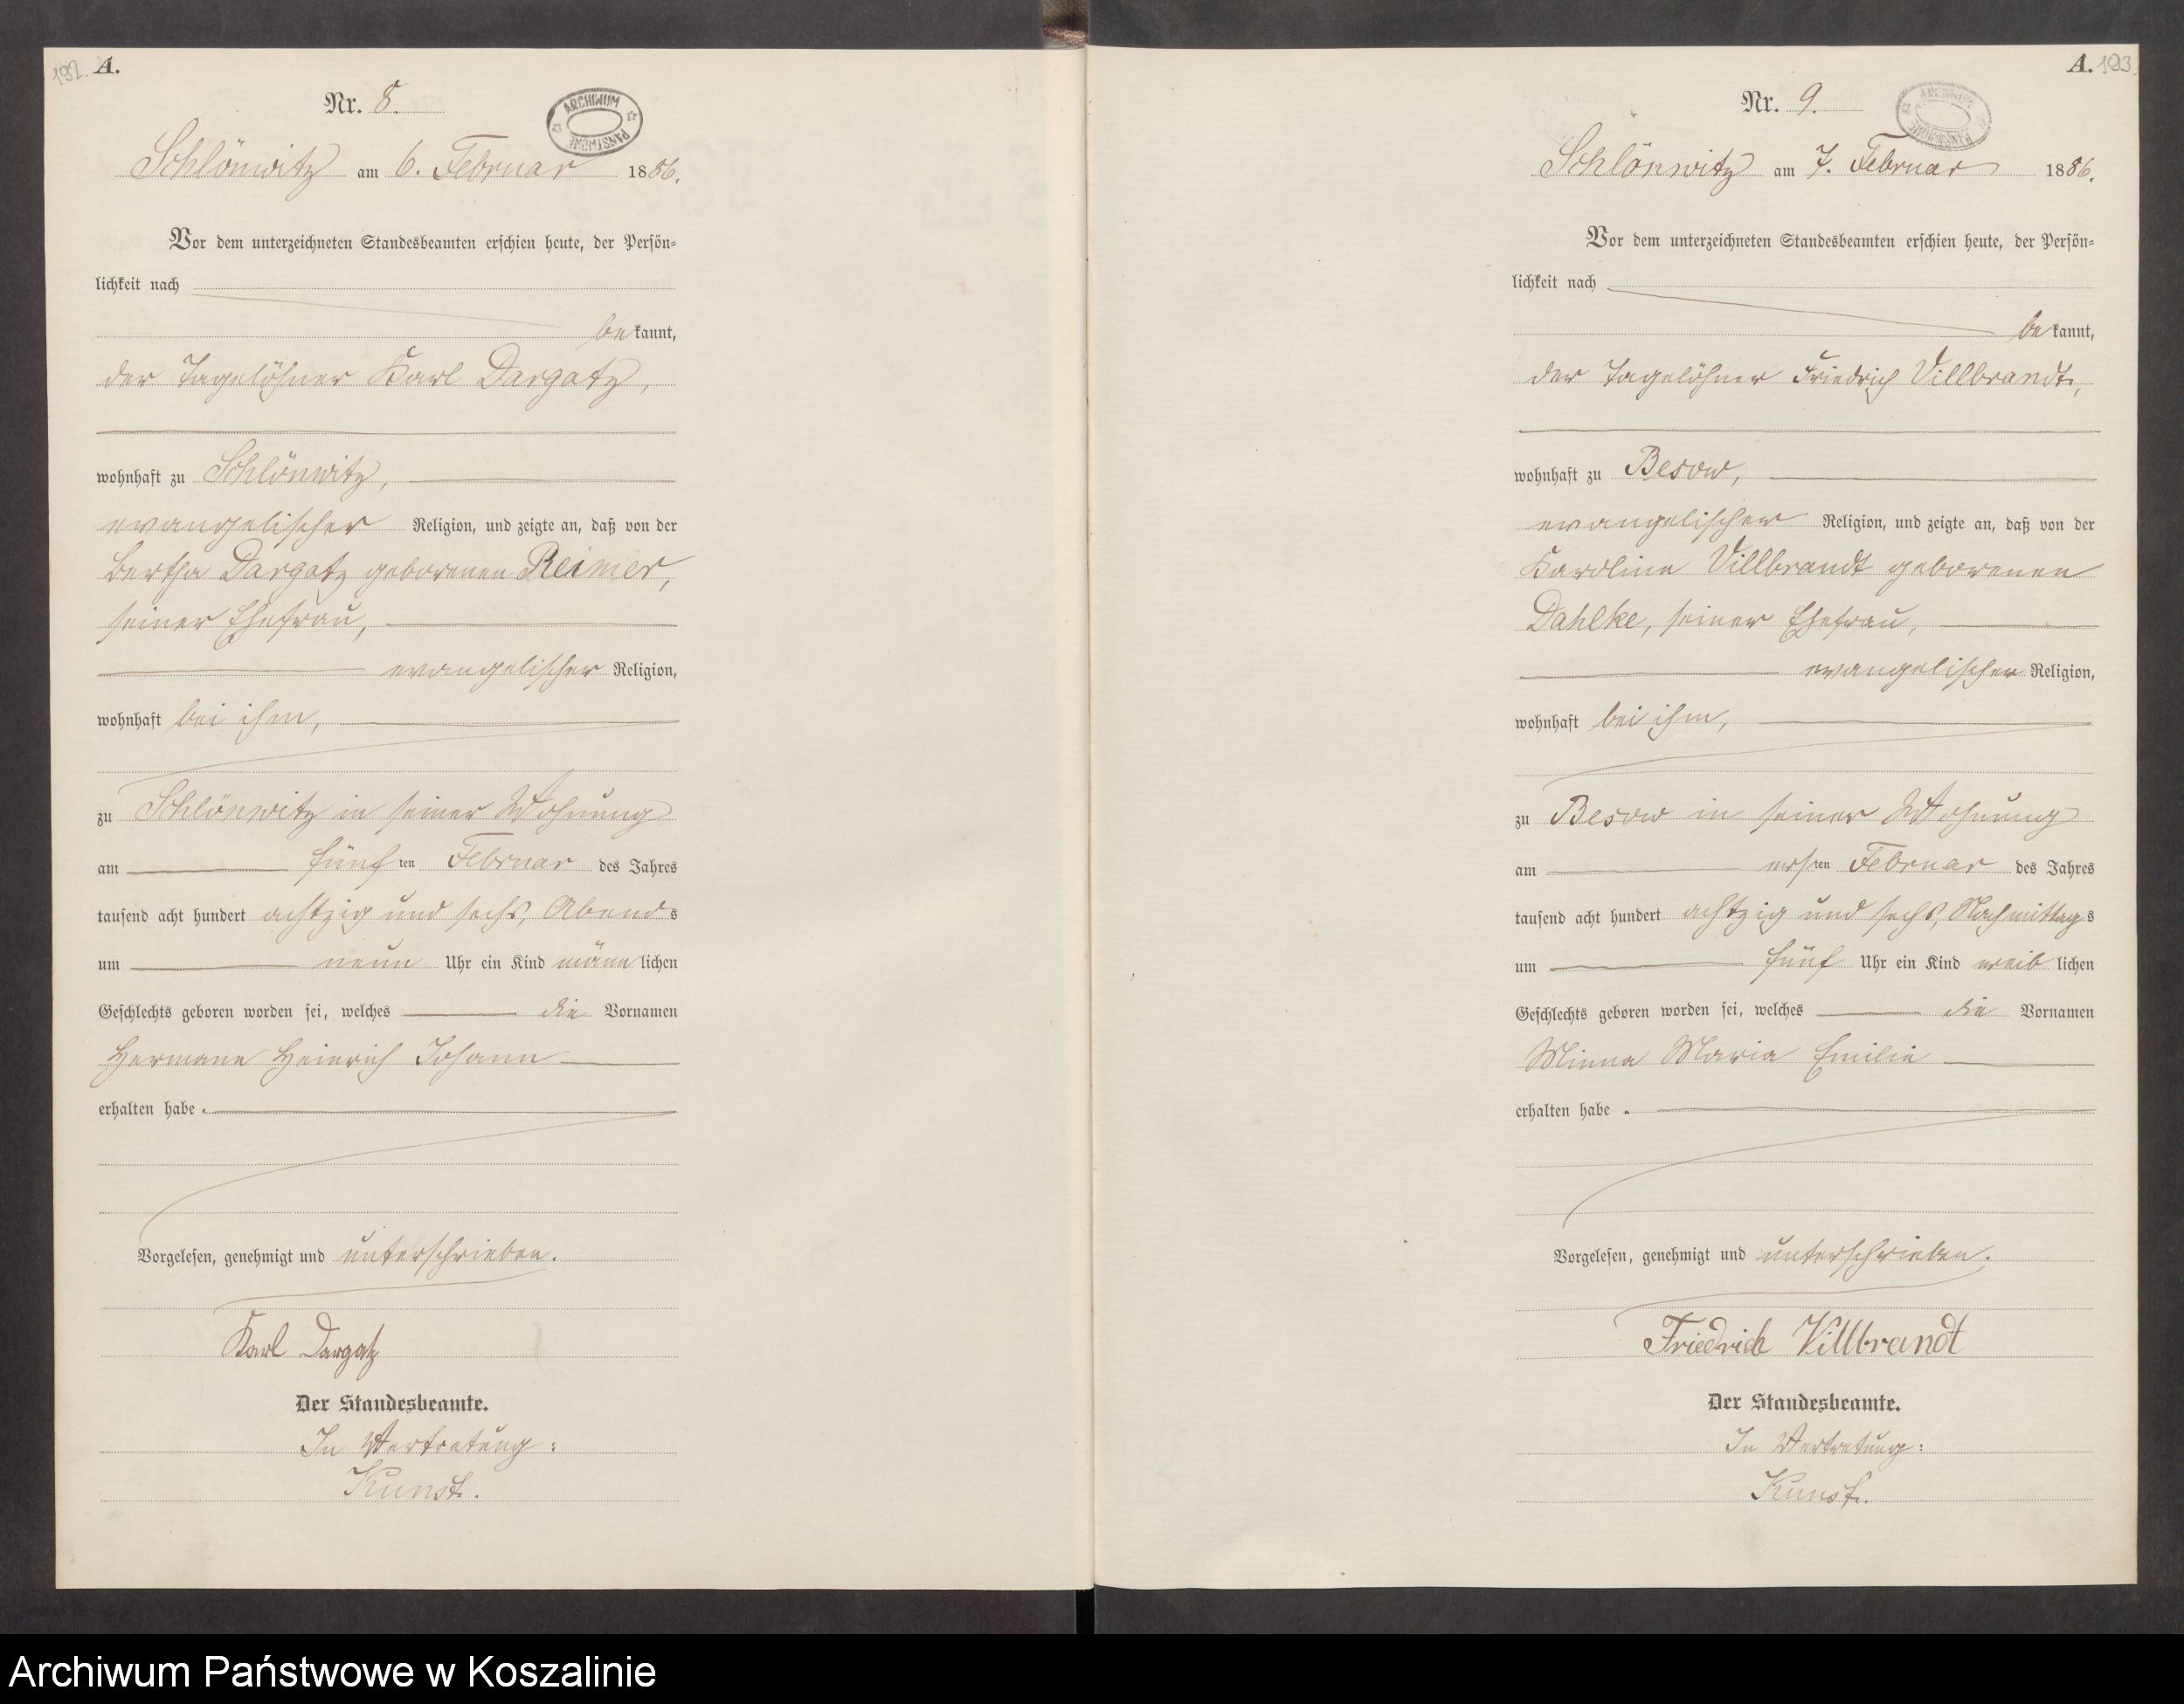 192. A.
Nr. 8.
ARCHIWUM PAŃSTWOWE
Schlönwitz am 6. Februar 1886.
Vor dem unterzeichneten Standesbeamten erschien heute, der Persön-
lichkeit nach
bekannt,
der Tagelöhner Karl Dargatz,
wohnhaft zu Schlönwitz,
evangelischer Religion, und zeigte an, daß von der
Bertha Dargatz geborenen Reimer,
seiner Ehefrau,
evangelischer Religion,
wohnhaft bei ihm,
zu Schlönwitz in seiner Wohnung
am fünften Februar des Jahres
tausend acht hundert achtzig und sechs, Abends
um neun Uhr ein Kind männlichen
Geschlechts geboren worden sei, welches die Vornamen
Hermann Heinrich Johann
erhalten habe.
Vorgelesen, genehmigt und unterschrieben.
Karl Dargatz
Der Standesbeamte.
In Vertretung:
Kunst.
A. 193
Nr. 9.
ARCHIWUM PAŃSTWOWE
Schlönwitz am 7. Februar 1886.
Vor dem unterzeichneten Standesbeamten erschien heute, der Persön-
lichkeit nach
bekannt,
der Tagelöhner Friedrich Villbrandt,
wohnhaft zu Besow,
evangelischer Religion, und zeigte an, daß von der
Karoline Villbrandt geborenen
Dahlke, seiner Ehefrau,
evangelischer Religion,
wohnhaft bei ihm,
zu Besow in seiner Wohnung
am ersten Februar des Jahres
tausend acht hundert achtzig und sechs, Nachmittags
um fünf Uhr ein Kind weiblichen
Geschlechts geboren worden sei, welches die Vornamen
Minna Maria Emilie
erhalten habe.
Vorgelesen, genehmigt und unterschrieben.
Friedrich Villbrandt
Der Standesbeamte.
In Vertretung:
Kunst.
Archiwum Państwowe w Koszalinie